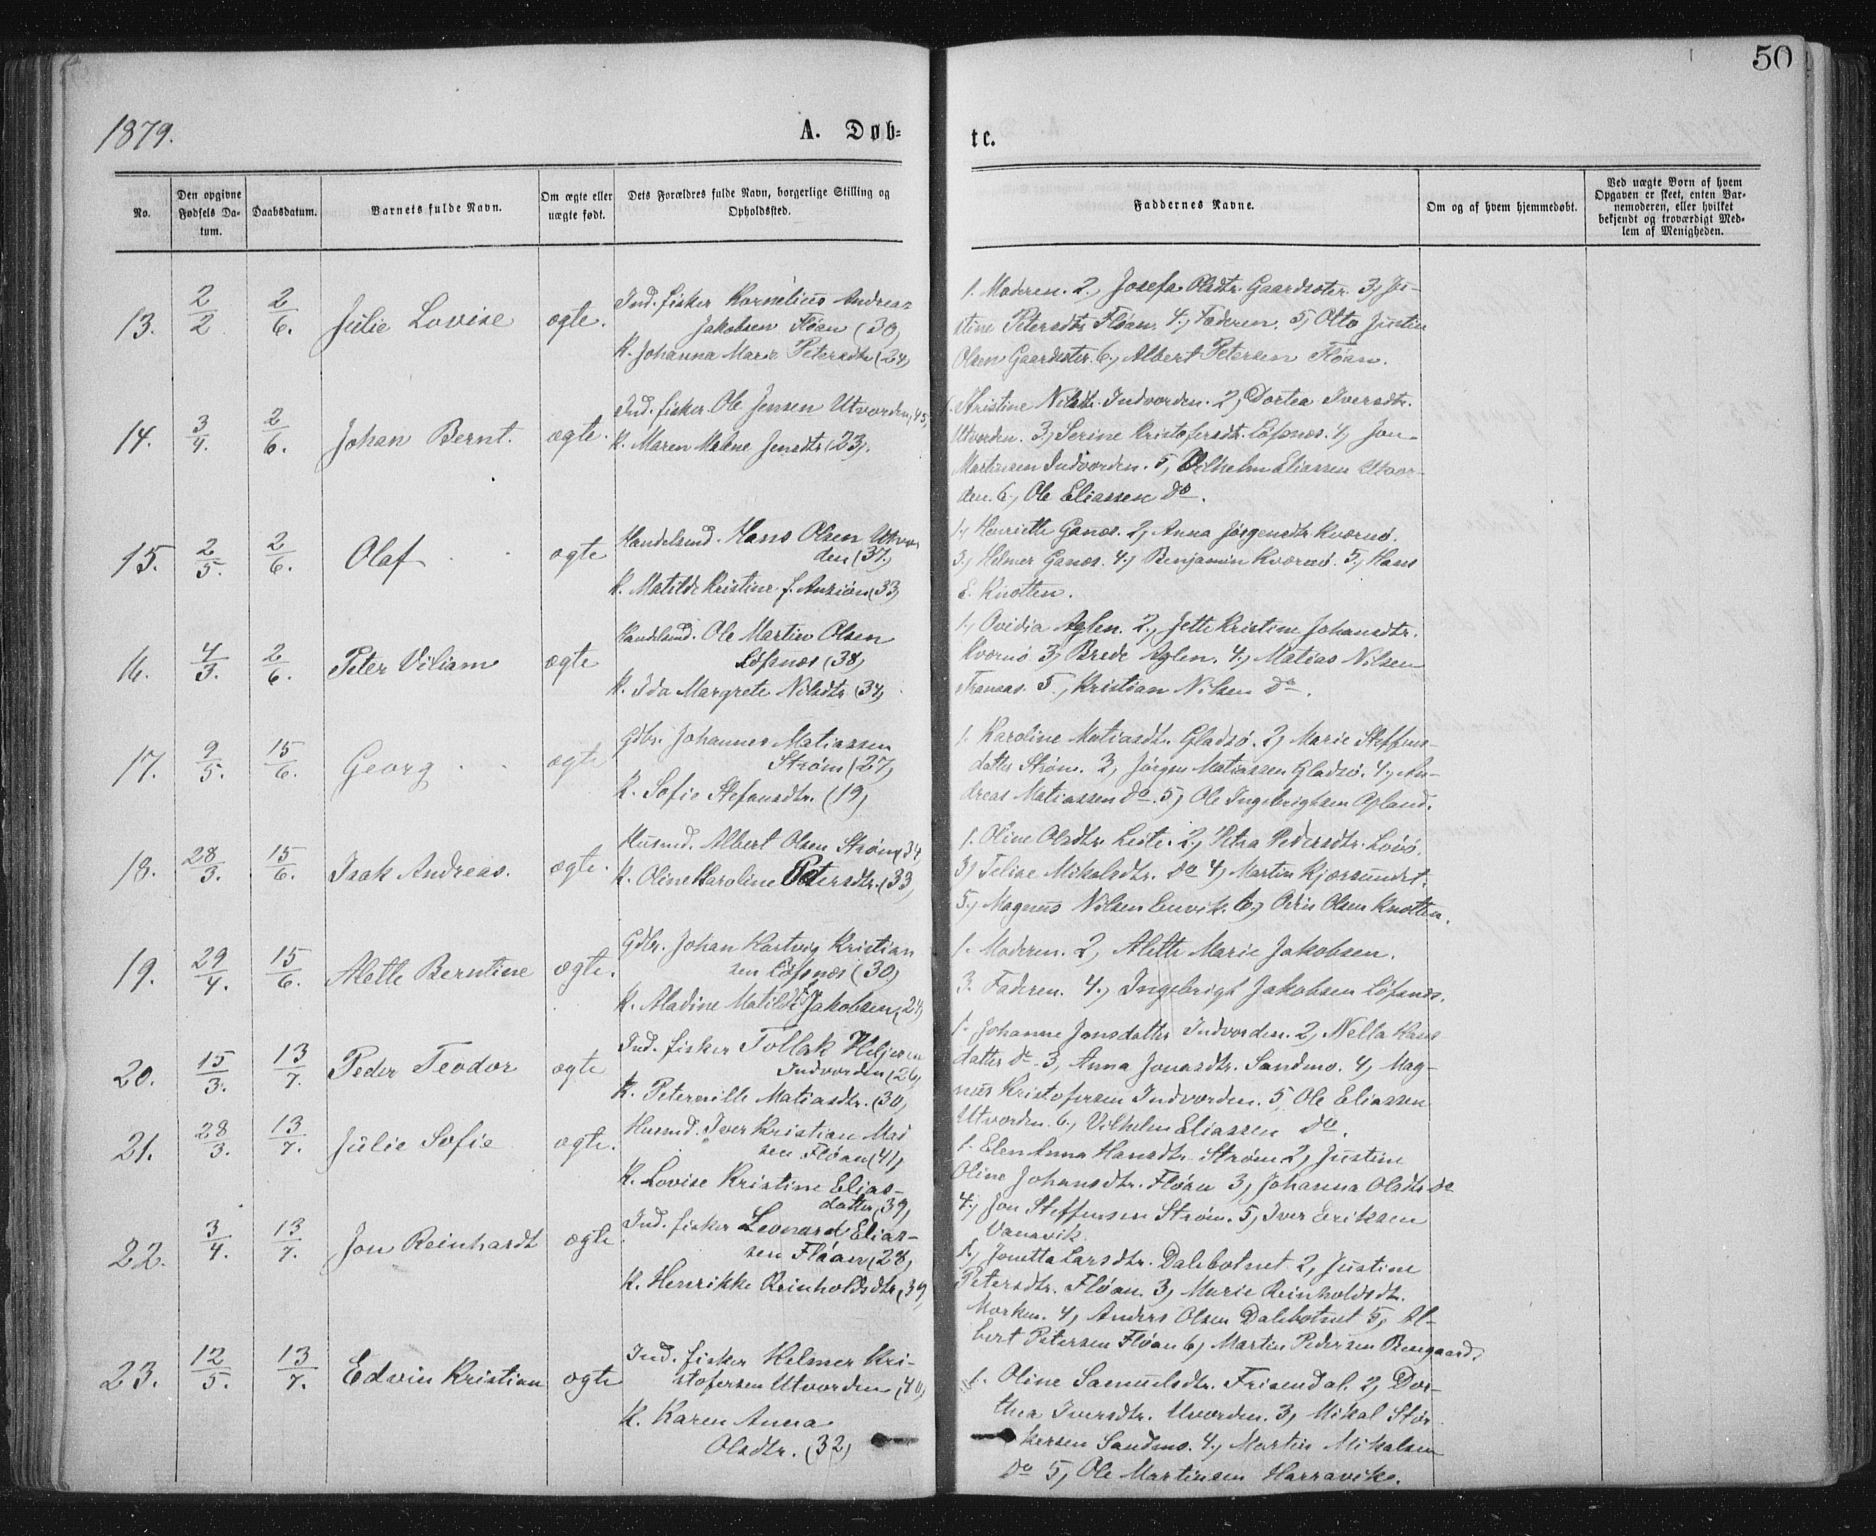 50
1879.
A. Døb-
te.
No.
Den opgivne Fødsels Da-tum.
Daabsdatum.
Barnets fulde Navn.
Om ægte eller uægte født.
Dets Forældres fulde Navn, borgerlige Stilling og Opholdssted.
Faddernes Navne.
Om og af hvem hjemmedøbt.
Ved uægte Børn af hvem Opgaven er skeet, enten Bar-nemoderen, eller hvilket bekjendt og troværdigt Med-lem af Menigheden.
13. 2/2 2/6. Julie Lovise ægte.
Ind. fisker Kornelius Andreas
Jakobsen Fløan (30)
K. Johanna Marie Petersdtr (24)
1. Moderen. 2, Josefa Olsdtr. Gaardseter. 3, Ju-
stine Petersdtr Fløan. 4, Faderen. 5, Otto Justin
Olsen Gaardseter. 6, Albert Petersen Fløan.
14. 3/4. 2/6. Johan Bernt. ægte.
Ind. fisker Ole Jensen Utvorden, 45,
K. Maren Malene Jensdtr (23).
Kristine Nilsdtr. Indvorden. 2, Dortea Iversdtr.
Utvorden. 3, Serine Kristofersdtr. Løfsnes. 4, Jon
Martinsen Indvorden. 5, Vilhelm Eliassen Utvor-
den. 6, Ole Eliassen do.
15. 2/5. 2/6. Olaf ægte
Handelsmd. Hans Olsen Utvor
den (37)
K. Matilde Kristine f. Anzion (33)
1, Henriette Ganes. 2, Anna Jørgensdtr Kvernø.
3, Helmer Ganes. 4, Benjamin Kværnø. 5, Hans
E. Knotten.
16. 4/3. 2/6. Peter Viliam ægte
Handelsmd. Ole Martin Olsen
Løfsnes (38)
K. Ida Margrete Nilsdtr (34)
1, Ovidia Aglen. 2, Jette Kristine Johansdtr.
Kvernø 3, Brede Aglen. 4, Matias Nilsen
Framnes. 5, Kristian Nilsen do.
17. 9/5. 15/6. Georg ægte
Gdbr. Johannes Matiassen
Strøm (27)
K. Sofie Stefansdtr. (19)
1. Karoline Matiasdtr. Gladsø. 2, Marie Steffens-
datter Strøm. 3, Jørgen Matiassen Gladsø. 4, An-
dreas Matiassen do. 5, Ole Ingebrigtsen Opland.
18. 28/3. 15/6. Isak Andreas. ægte.
Husmd. Albert Olsen Strøm (34
K. Oline Karoline Petersdtr. (33)
1. Oline Olsdtr. Leite. 2, Petra Pedersdtr. Lovø.
3, Felise Mikalsdtr. do 4, Martin Kjærsundet.
5, Magnus Nilsen Lervik. 6, Odin Olsen Knotten.
19. 29/4. 15/6. Alette Berntine ægte.
Gdbr. Johan Hartvig Kristian
sen Løfsnes (30)
K. Aladine Matilde f. Jakobsen, 24)
1. Moderen. 2, Alette Marie Jakobsen.
3. Faderen. 4, Ingebrigt Jakobsen Løfsnes.
20. 15/3. 13/7. Peder Teodor ægte
Ind. fisker Tollak Heljesen
Indvorden (26)
K. Peternille Matiasdtr. (30)
1. Johanne Jonsdatter Indvorden. 2, Nella Hans
datter do. 3, Anna Jonasdtr. Sandmo. 4, Mag-
nus Kristofersen Indvorden. 5, Ole Eliassen
Utvorden. 6, Vilhelm Eliassen do.
21. 28/3. 13/7. Julie Sofie ægte.
Husmd. Iver Kristian Mad
sen Fløan (41)
K. Lovise Kristine Elias-
datter, 39,
1. Elen Anna Hansdtr. Strøm 2, Justine
Oline Johansdtr. Fløan 3, Johanna Olsdtr do
4, Jon Steffensen Strøm. 5, Iver Eriksen
Vansvik.
22. 3/4. 13/7. Jon Reinhardt ægte
Ind. fisker Leonard Elias-
sen Fløan (28)
K. Henrikke Reinholdsdtr, 39,
1, Jonetta Larsdtr. Dalebotnet 2, Justine
Petersdtr. Fløan. 3, Marie Reinholdsdt.
Morken. 4, Anders Olsen Dalebotnet 5, Al-
bert Petersen Fløan 6, Martin Pedersen
23. 12/5. 13/7. Edvin Kristian ægte
Ind. fisker Helmer Kri-
stofersen Utvorden (40)
K. Karen Anna
Olsdtr. (32)
1. Oline Samuelsdtr. Frisendal. 2, Dor-
thea Iversdtr. Utvorden. 3, Mikal Stør-
kersen Sandmo. 4, Martin Mikalsen
do 5, Ole Martinsen Harravik.